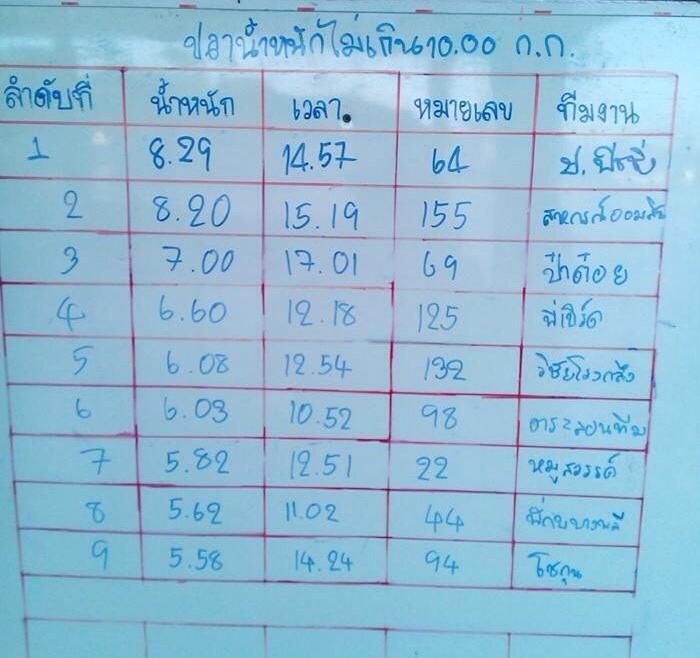 ปลาน้ำหนักไม่เกิน10.00 ก.ก.
ลำดับที่ น้ำหนัก เวลา. หมายเลข ทีมงาน
1 8.29 14.57 64 ป.
2 8.20 15.19 155
3 7.00 17.01 69 ป๋าต๋อย
4 6.60 12.18 125 พี่เบิร์ด
5 6.08 12.54 132 วิชัยโรงกลึง
6 6.03 10.52 98
7 5.82 12.51 22 หมูสวรรค์
8 5.62 11.02 44
9 5.58 14.24 94 โชกุน